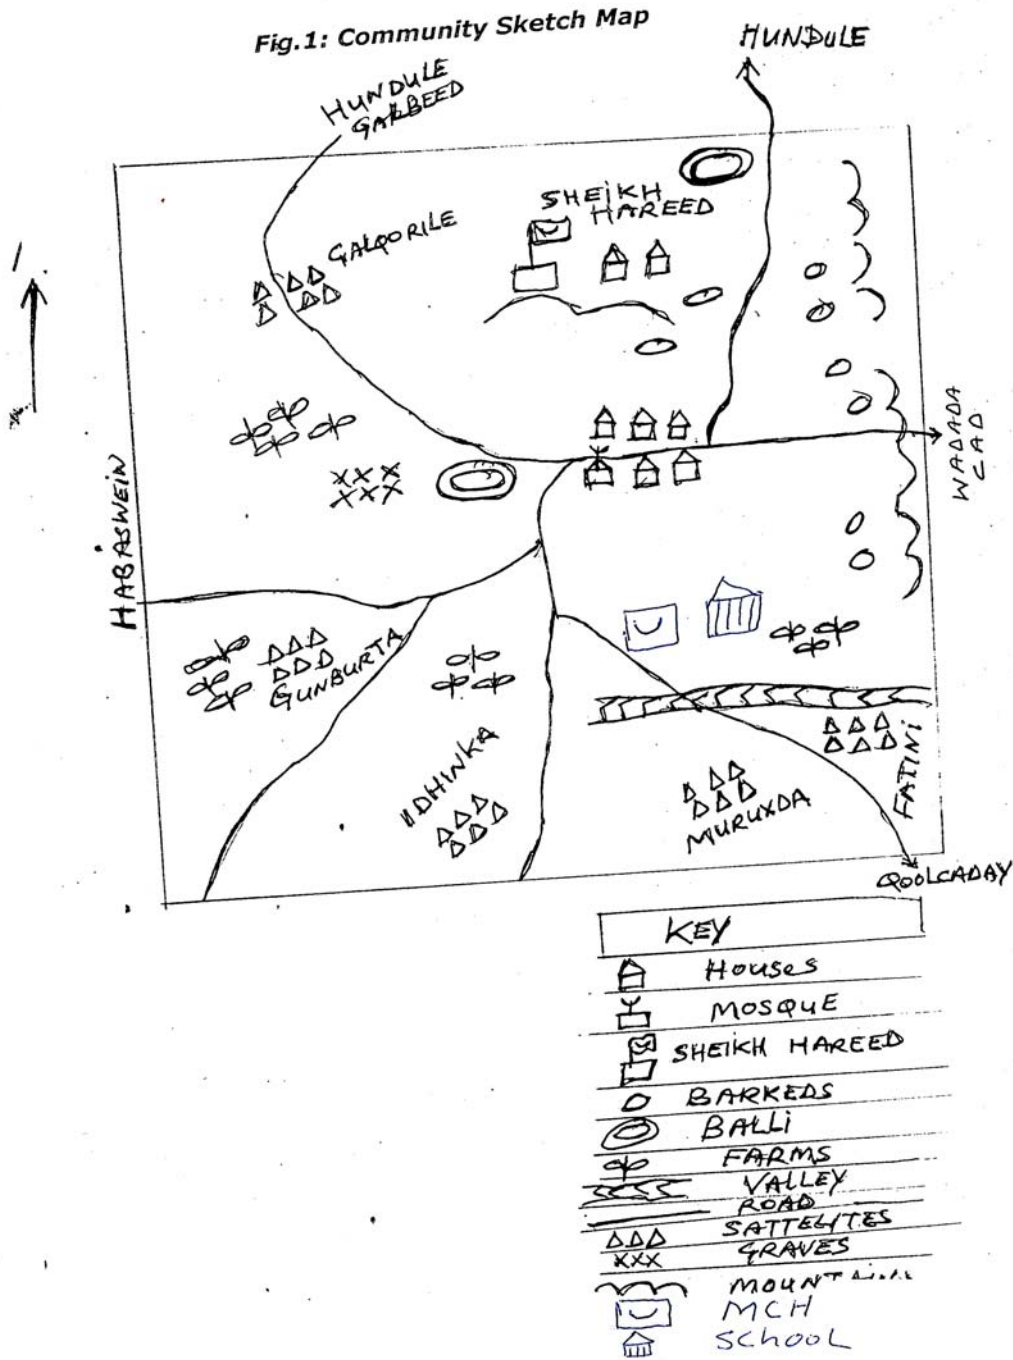 Fig.1: Community Sketch Map
HUNDULE
HUNDULE
GARBEED
SHEIKH
HAREED
GALQORILE
WADADA
CAD
HABASWEIN
GUNBURTA
IIDHINKA
MURUXDA
FATINI
QOOLCADAY
KEY
HOUSES
MOSQUE
SHEIKH HAREED
BARKEDS
BALLI
FARMS
VALLEY
ROAD
SATTELITES
XXX GRAVES
MOUNTAINS
MCH
SCHOOL